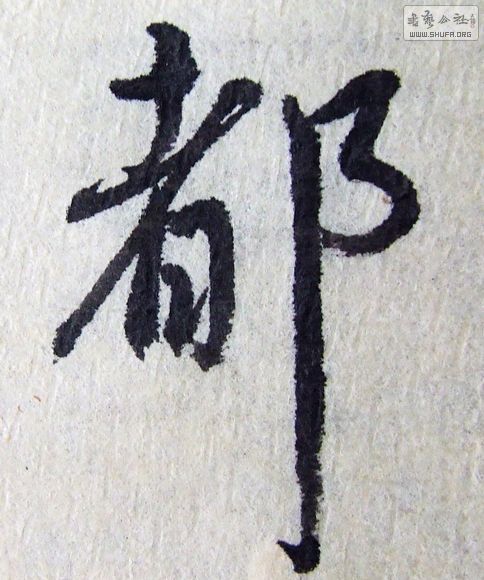 書藝公社
WWW.SHUFA.ORG
都